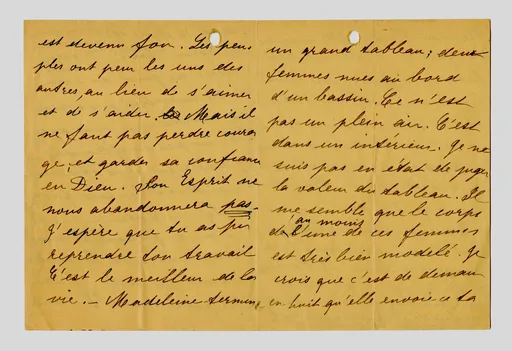 est devenu fou. Les peu-
ples ont peur les uns des
autres, au lieu de s'aimer
et de s'aider. Mais il
ne faut pas perdre coura
ge, et garder sa confiance
en Dieu. Son Esprit ne
nous abandonnera pas.
J'espère que tu as pu
reprendre ton travail
C'est le meilleur de la
vie. — Madeleine termine
un grand tableau; deux
femmes nues au bord
d'un bassin. Ce n'est
pas un plein air. C'est
dans un intérieur. Je ne
suis pas en état de juger
la valeur du tableau. Il
me semble que le corps
au moins
de l'une de ces femmes
est très bien modelé. Je
crois que c'est de demain
en huit qu'elle envoie ce ta